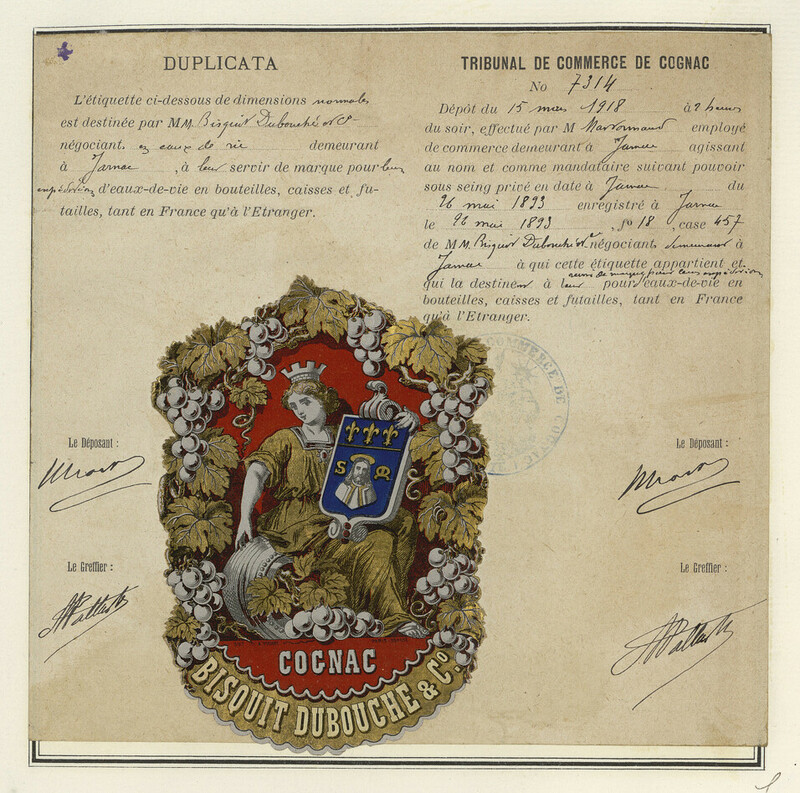 DUPLICATA
L'étiquette ci-dessous de dimensions normales
est destinée par MM. Bisquit Dubouché et Cº
négociants en eaux de vie demeurant
à Jarnac, à leur servir de marque pour leurs
expéditions d'eaux-de-vie en bouteilles, caisses et fu-
tailles, tant en France qu'à l'Etranger.
Le Déposant :
Le Greffier :
TRIBUNAL DE COMMERCE DE COGNAC
No 7314
Dépôt du 15 mars 1918 à 2 heures
du soir, effectué par M employé
de commerce demeurant à Jarnac agissant
au nom et comme mandataire suivant pouvoir
sous seing privé en date à Jarnac du
26 mai 1893 enregistré à Jarnac
le 26 mai 1893, fº 18, case 457
de MM. Bisquit Dubouché et Cº négociants demeurant à
Jarnac à qui cette étiquette appartient et
qui la destinent à leur servir de marque pour leurs expéditions pour d'eaux-de-vie en
bouteilles, caisses et futailles, tant en France
qu'à l'Etranger.
COMMERCE DE COGNAC
Le Déposant :
Le Greffier :
S M
COGNAC
BISQUIT DUBOUCHE & Cº.